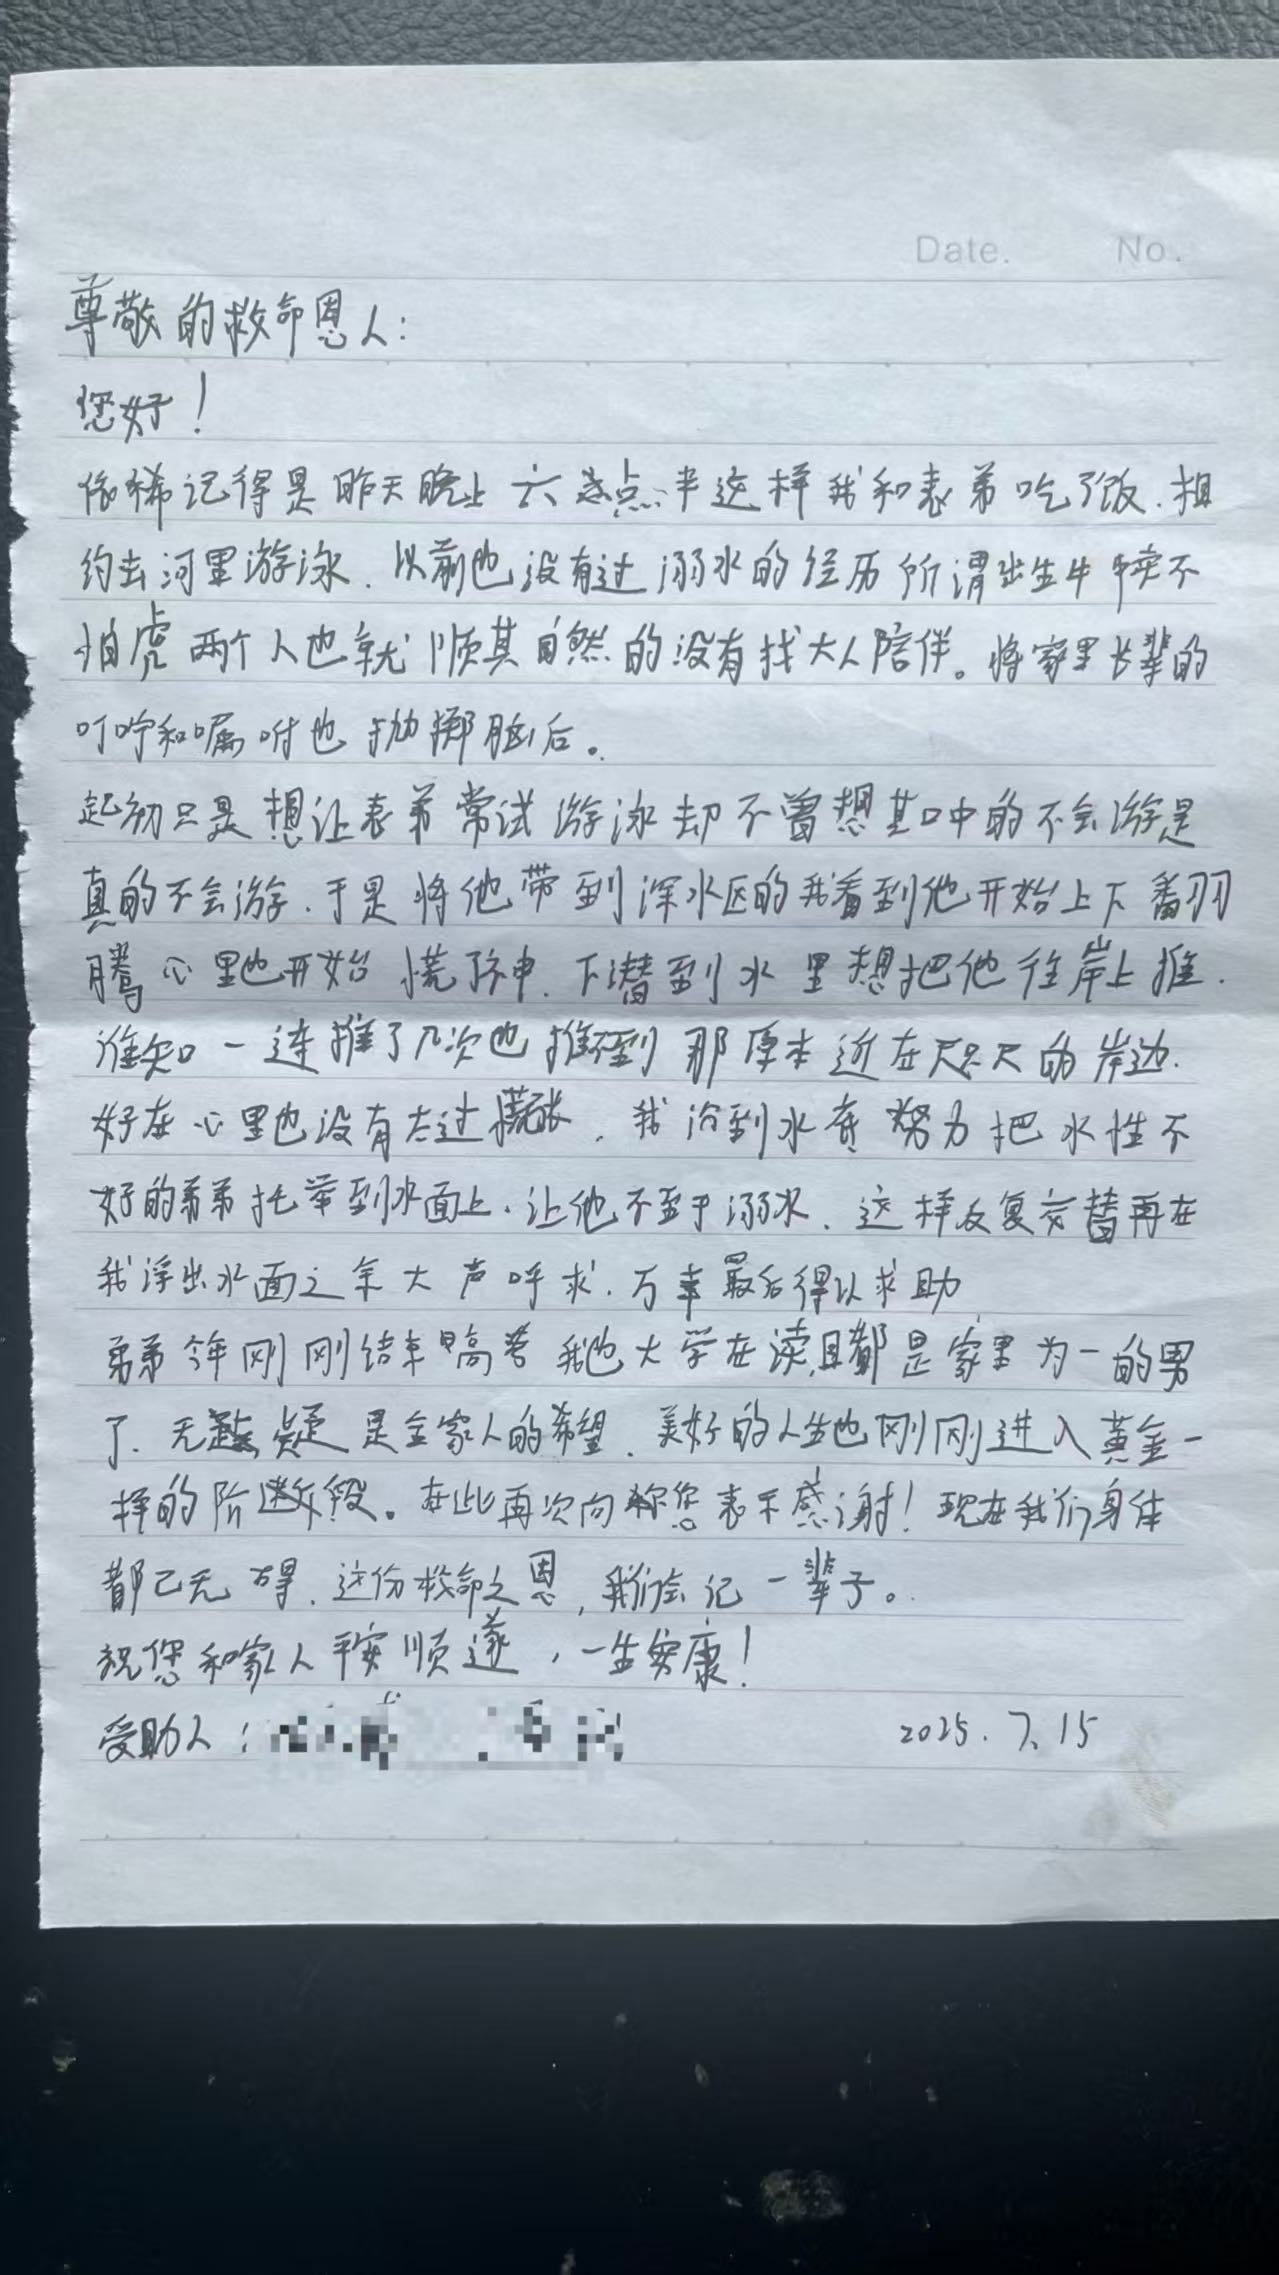 Date. No.
尊敬的救命恩人：
您好！
依稀记得是昨天晚上六点半这样我和表弟吃了饭.相
约去河里游泳.以前也没有过溺水的经历所谓出生牛犊不
怕虎两个人也就顺其自然的没有找大人陪伴。将家里长辈的
叮咛和嘱咐也抛掷脑后。
起初只是想让表弟常试游泳却不曾想其口中的不会游是
真的不会游.于是将他带到深水区的我看到他开始上下翻
腾心里也开始慌了神.下潜到水里想把他往岸上推.
谁知一连推了几次也推不到那原本近在咫尺的岸边.
好在心里也没有太过慌张.我沉到水底努力把水性不
好的弟弟托举到水面上.让他不至于溺水.这样反复交替再在
我浮出水面之余大声呼求.万幸最后得以求助
弟弟今年刚刚结束高考我也大学在读且都是家里为一的男
丁.无疑是全家人的希望.美好的人生也刚刚进入黄金一
样的阶段。在此再次向您表示感谢！现在我们身体
都已无碍.这份救命之恩,我们会记一辈子。
祝您和家人平安顺遂，一生安康！
受助人：
2025.7.15